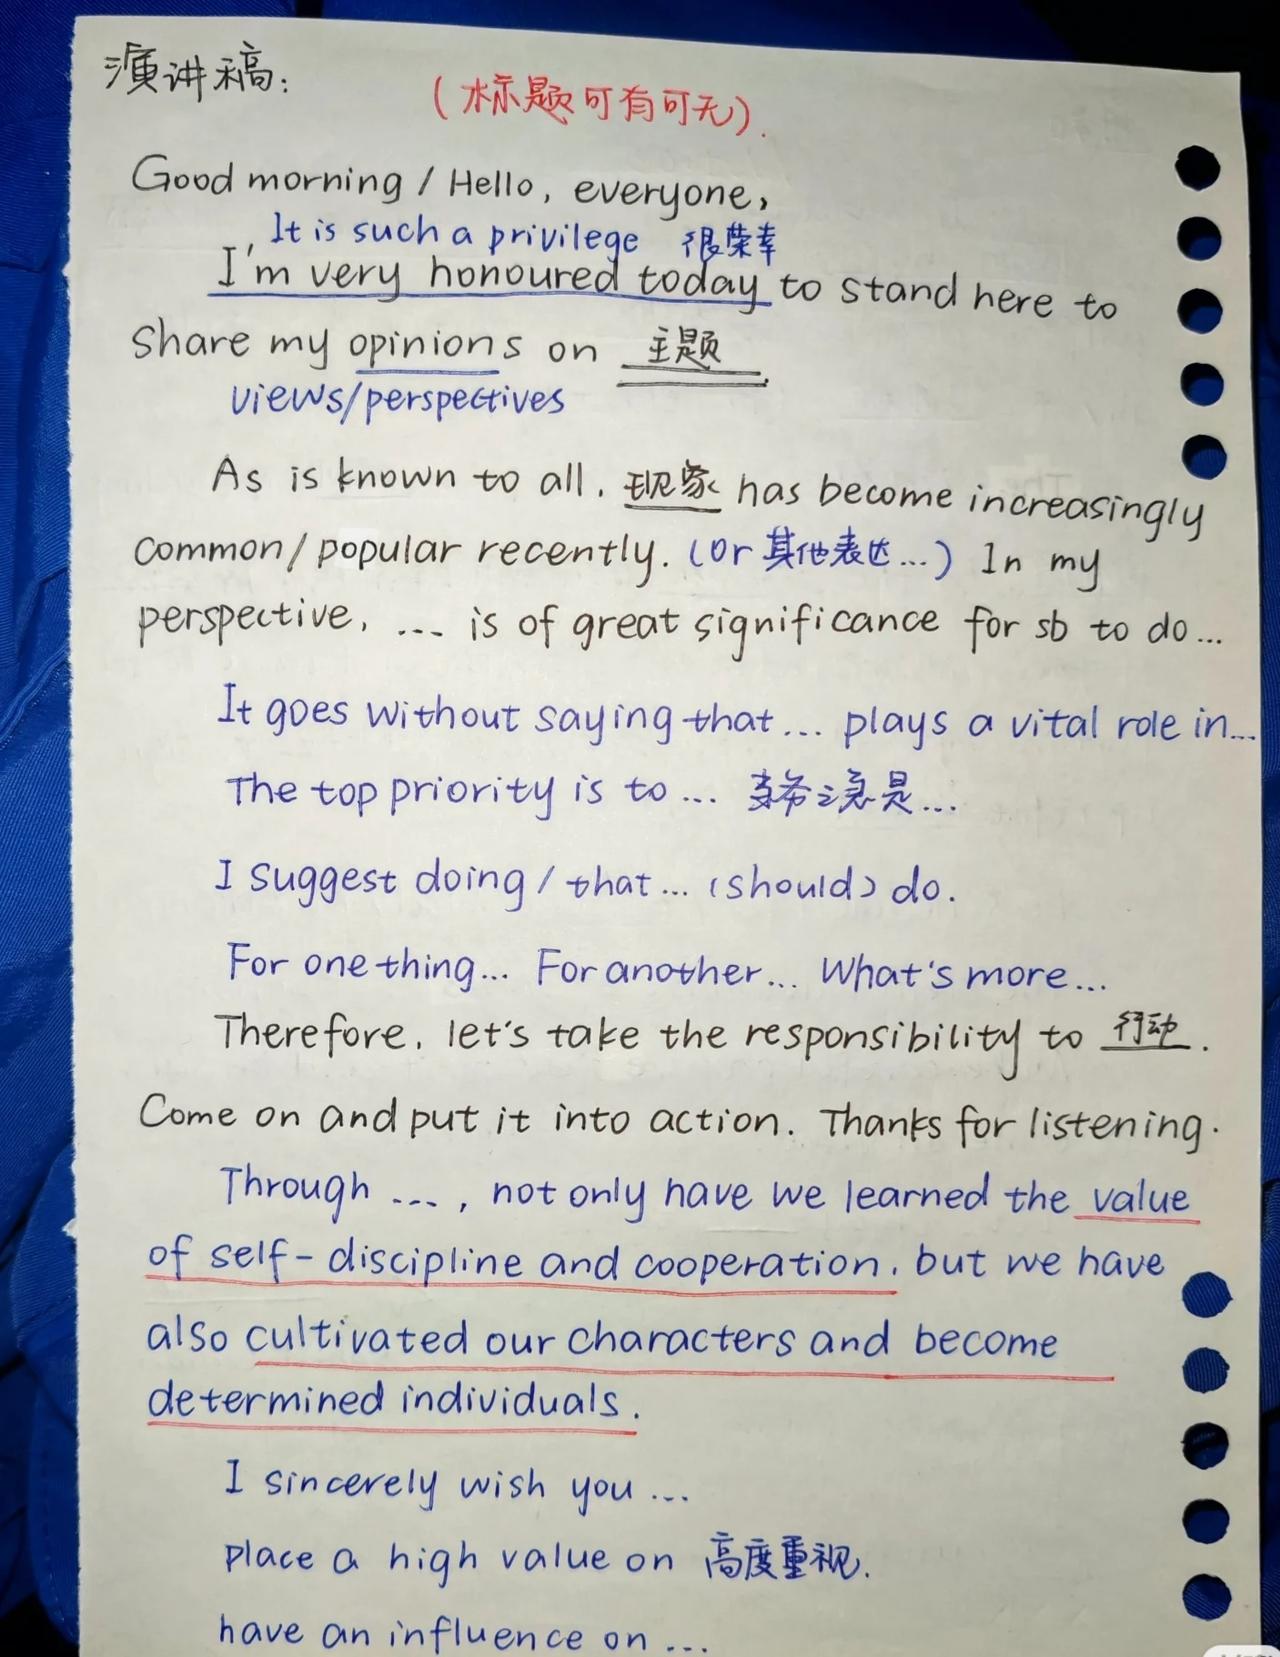 演讲稿:
(标题可有可无).
Good morning / Hello, everyone,
It is such a privilege 很荣幸
I'm very honoured today to stand here to
share my opinions on 主题
views/perspectives
As is known to all, 现象 has become increasingly
common/popular recently. (or 其他表达...) In my
perspective, ... is of great significance for sb to do...
It goes without saying that... plays a vital role in...
The top priority is to ... 当务之急是...
I suggest doing / that... (should) do.
For one thing... For another... What's more...
Therefore, let's take the responsibility to 行动.
Come on and put it into action. Thanks for listening.
Through ..., not only have we learned the value
of self-discipline and cooperation, but we have
also cultivated our characters and become
determined individuals.
I sincerely wish you ...
place a high value on 高度重视.
have an influence on ...